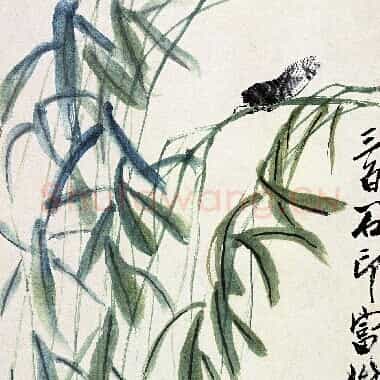 三百石印富翁
Shufawang.CN